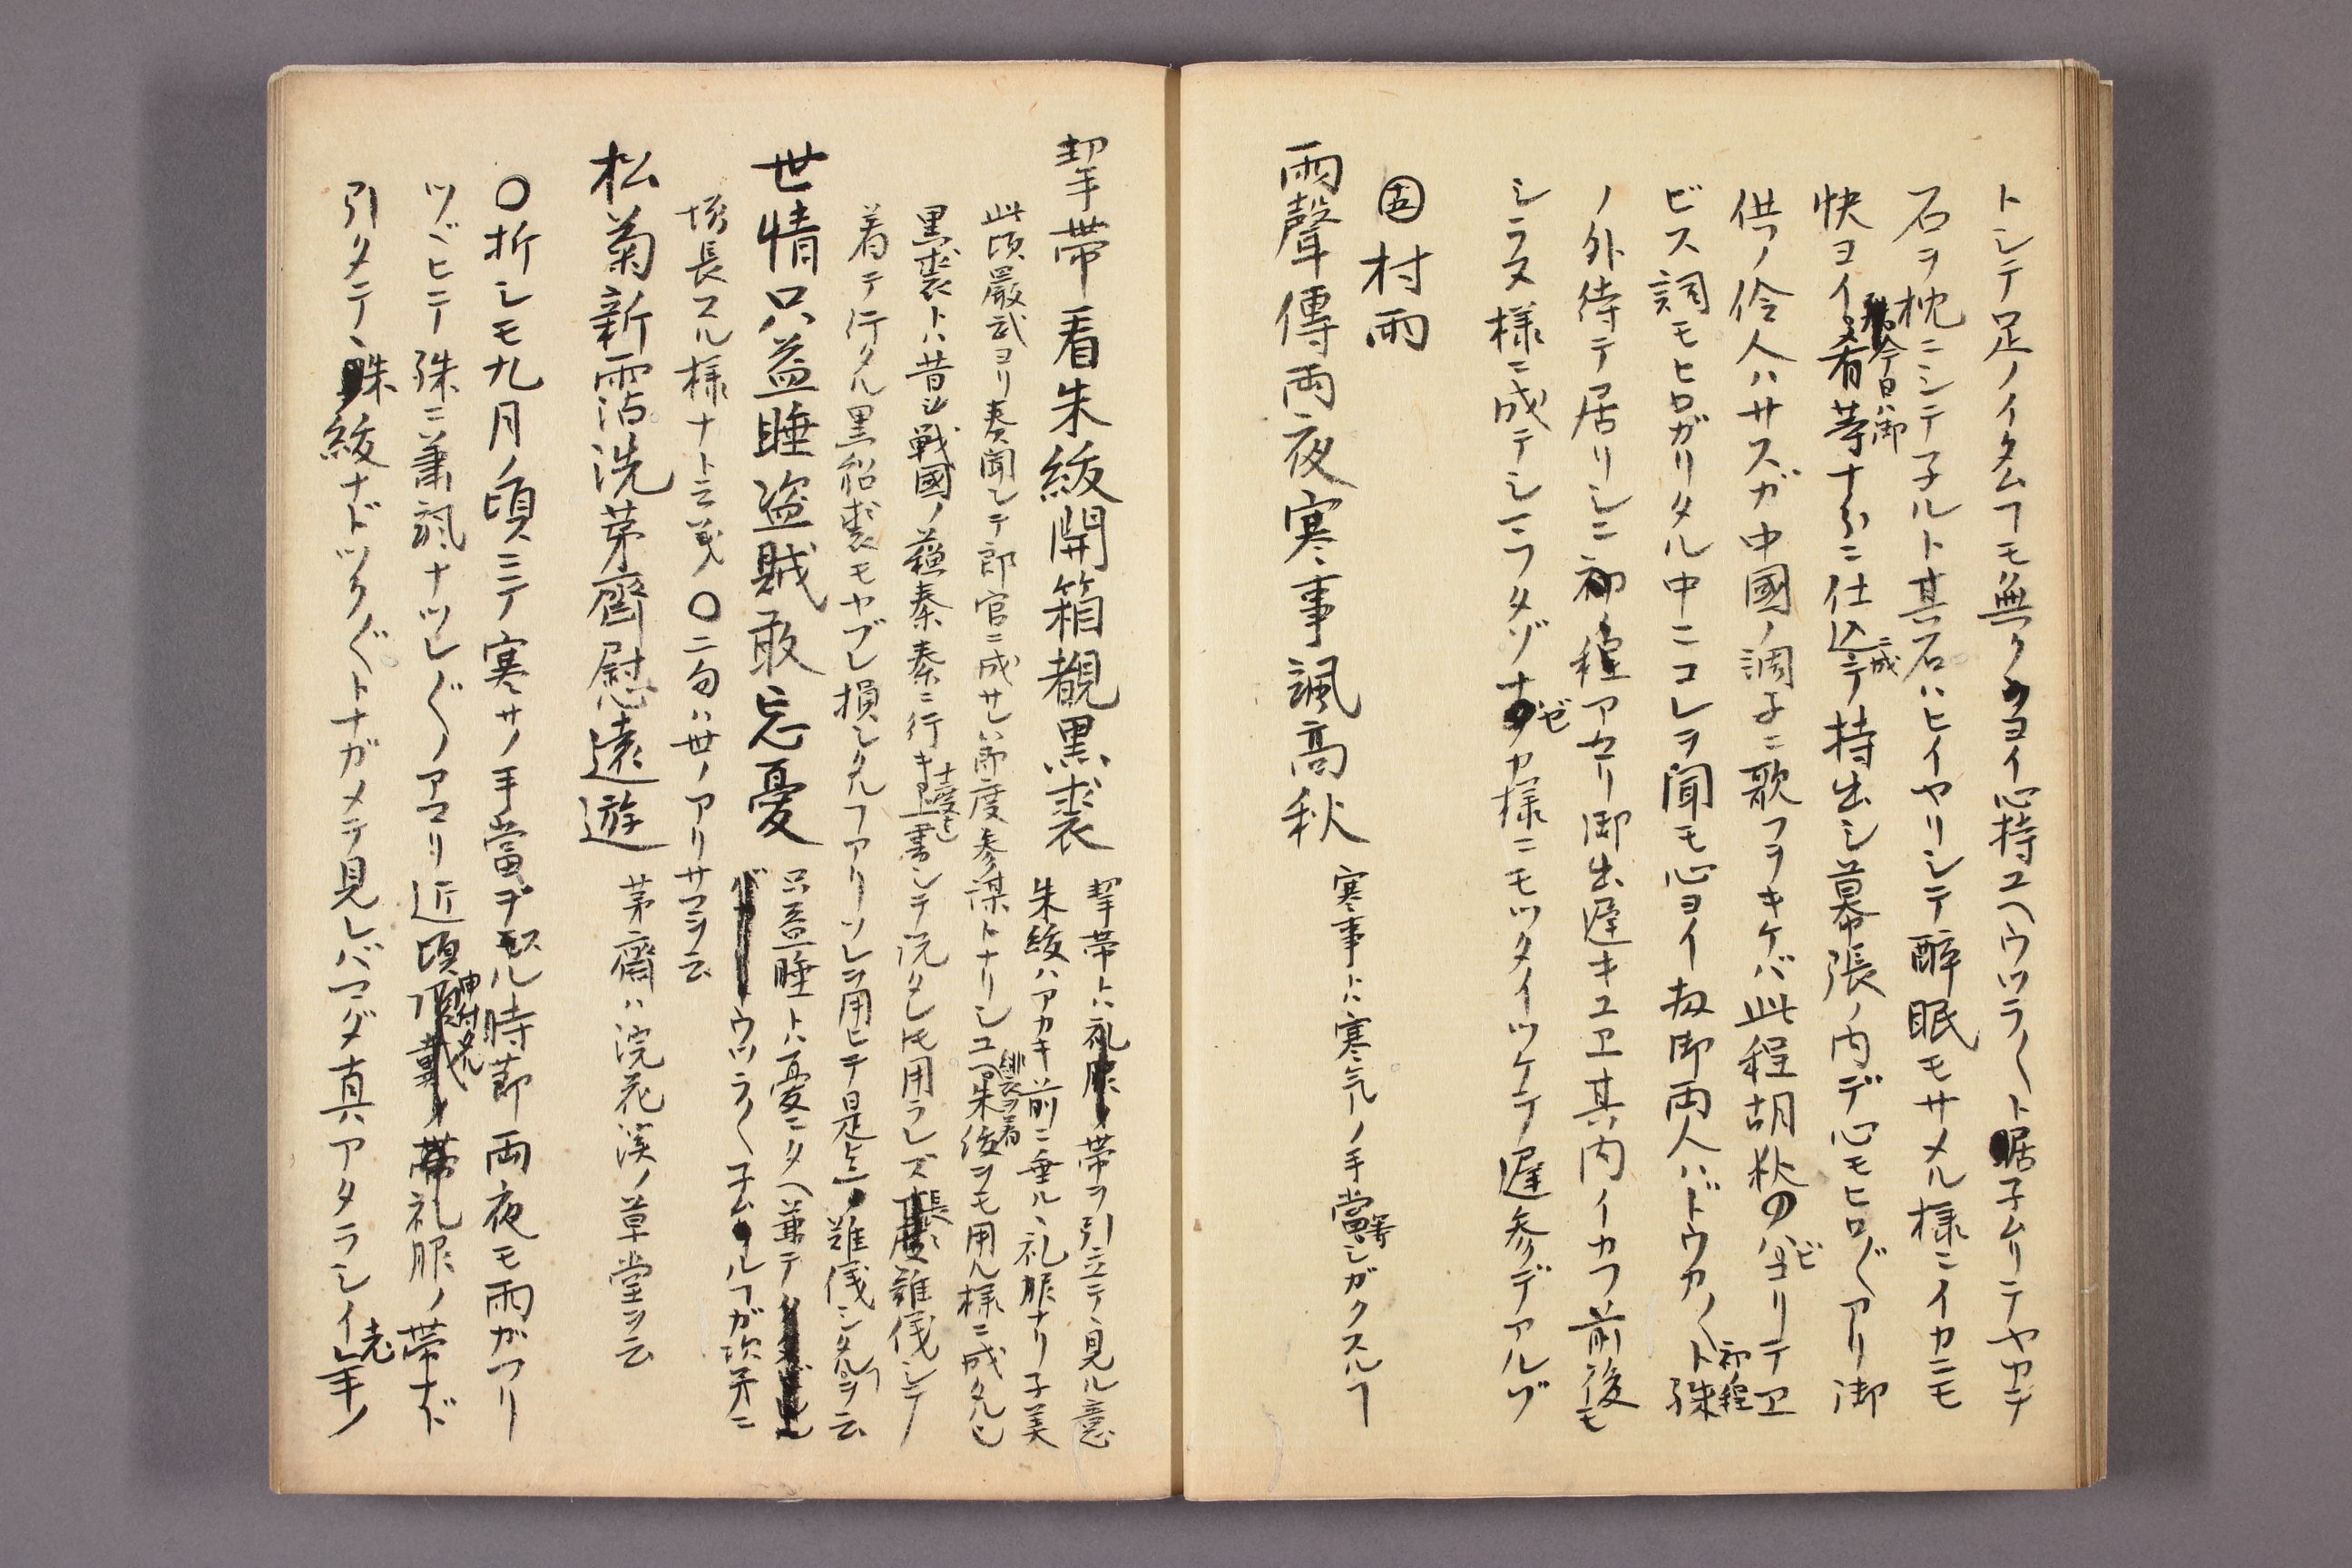 トシテ足ノイタムヿモ無クヨイ心持ユヘウツラ〱ト踞子ムリテヤガテ
石ヲ枕ニシテ子ルト其石ハヒイヤリシテ醉眠モサメル様ニイカニモ
快ヨイ
今日ハ御
肴等ナドニ仕込テ持出シ幕張ノ内デ心モヒロ〲アリ御
ニ成
供ノ伶人ハサスガ中國ノ調子ニ歌フヲキケバ此程胡秋の
ヨリテヱ
ビス詞モヒロガリタル中ニコレヲ聞モ心ヨイ扨御両人ハドウカ〱ト殊
初程
ノ外待テ居リシニ初ノ程アマリ御出遅キユヱ其内イカフ前後モ
シラヌ様ニ成テシモフタゾナ
ゼ
カ様ニモツタイツケテ遅参デアルゾ
㊄村雨
雨聲傳両夜寒事颯高秋
寒事トハ寒気ノ手當
等
シガクスルヿ
挈帯看朱紱開箱覩黒裘
挈帯トハ礼服ノ帯ヲ引立テ見ル意
朱紱ハアカキ前ニ垂ル礼服ナリ子美
此頃嚴武ヨリ奏聞シテ郎官ニ成サレ節度参謀トナリシユヘ
緋衣ヲ着
朱紱ヲモ用ル様ニ成タル也
黒裘トハ昔シ戦國ノ蘇秦秦ニ行キ
十度も
上書シテ説タレ𪜈用ラレズ
長ク
難儀シテ
着テ行タル黒貂裘モヤブレ損シタルヿアリソレヲ用ヒテ是迄ノ難儀シタルヿヲ云
世情只益睡盗賊敢忘憂
只益睡トハ憂ニタヘ兼テ
ウツラ〱子ムルヿガ次第ニ
増長スル様ナト云義〇二句ハ世ノアリサマヲ云
松菊新霑洗茅齋慰遠遊
茅齋ハ浣花溪ノ草堂ヲ云
〇折シモ九月ノ頃ニテ寒サノ手當ヲスル時節両夜モ雨ガフリ
ツヾヒテ殊ニ蕭颯ナツレ〲ノアマリ近頃
申付タル
礼服ノ帯ナド
引タテ朱紱ナドツク〲トナガメテ見レバマダ真アタラシイ
老
年ノ